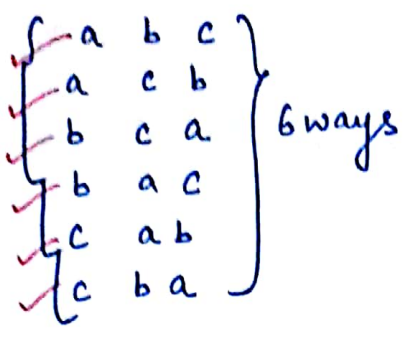 a b c
a c b
b c a
b a c
c a b
c b a
6 ways